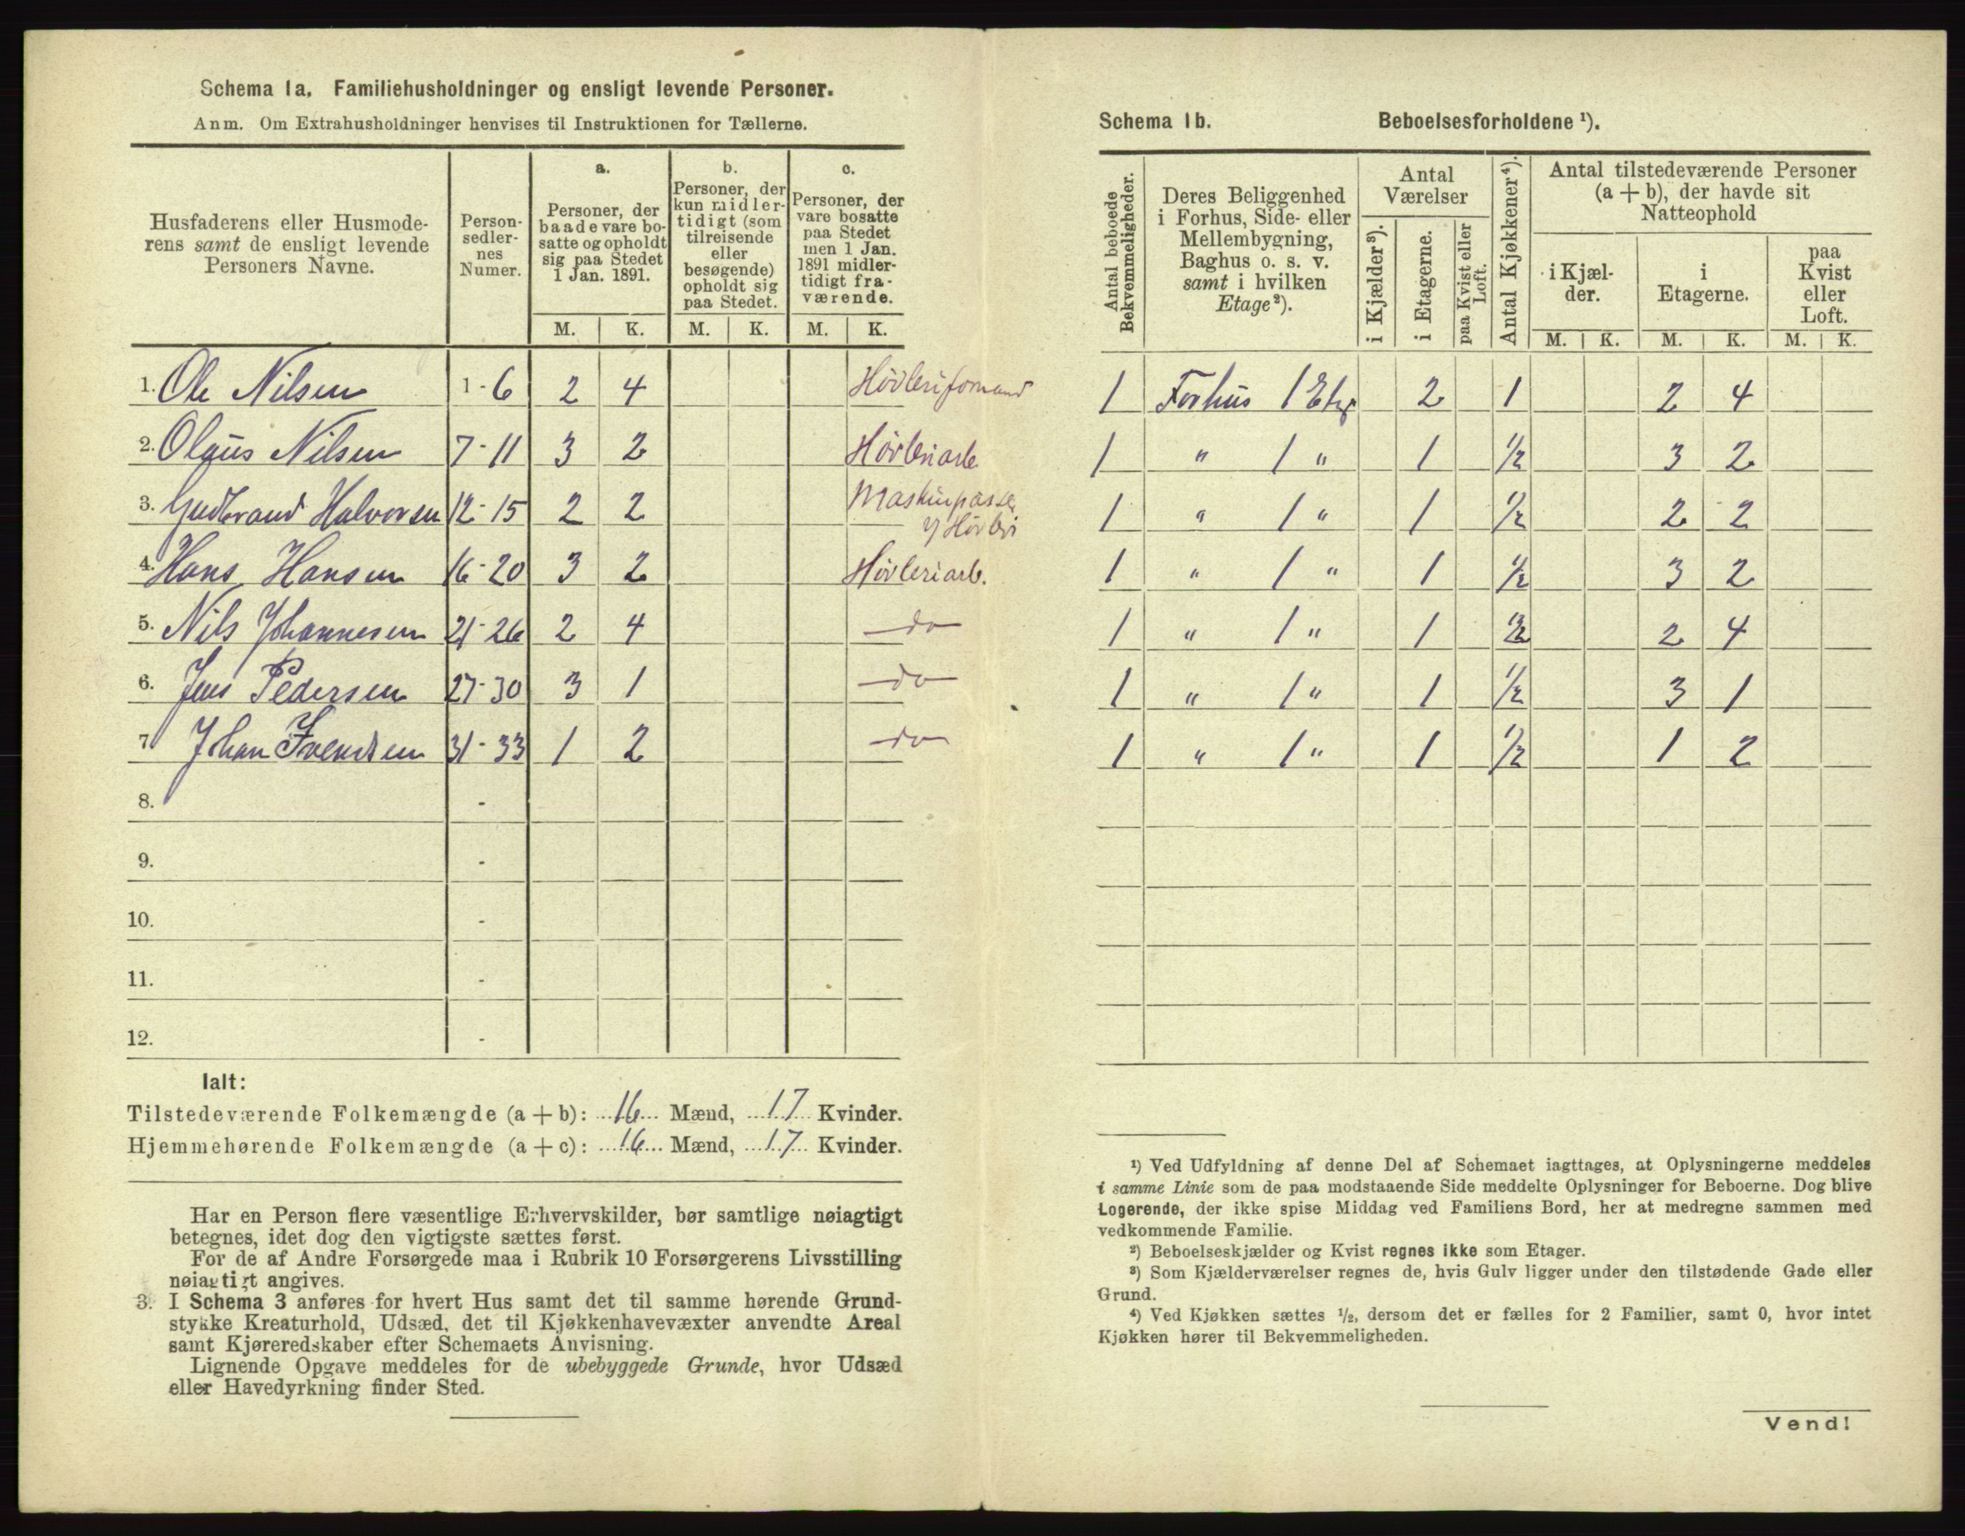 Schema 1a. Familiehusholdninger og ensligt levende Personer.
Anm. Om Extrahusholdninger henvises til Instruktionen for Tællerne.
Husfaderens eller Husmoderens samt de ensligt levende Personers Navne.
Person-sedler-nes Numer.
a. Personer, der baade vare bosatte og opholdt sig paa Stedet 1 Jan. 1891.
b. Personer, der kun midlertidigt (som tilreisende eller besøgende) opholdt sig paa Stedet.
c. Personer, der vare bosatte paa Stedet men 1 Jan. 1891 midlertidigt fraværende.
M. K. M. K. M. K.
1. Ole Nilsen 1-6 2 4 Høvleriformand
2. Olaus Nilsen 7-11 3 2 Høvleriarb
3. Gudbrand Halvorsen 12-15 2 2 Maskinpasser
y Høvleri
4. Hans Hansen 16-20 3 2 Høvleriarb.
5. Nils Johannesen 21-26 2 4 do
6. Jens Pedersen 27-30 3 1 do
7. Johan Svendsen 31-33 1 2 do
8. -
9. -
10. -
11. -
12. -
Ialt:
Tilstedeværende Folkemængde (a + b): 16 Mænd, 17 Kvinder.
Hjemmehørende Folkemængde (a + c): 16 Mænd, 17 Kvinder.
Har en Person flere væsentlige Erhvervskilder, bør samtlige nøiagtigt
betegnes, idet dog den vigtigste sættes først.
For de af Andre Forsørgede maa i Rubrik 10 Forsørgerens Livsstilling
nøiagtigt angives.
3. I Schema 3 anføres for hvert Hus samt det til samme hørende Grund-
stykke Kreaturhold, Udsæd, det til Kjøkkenhavevæxter anvendte Areal
samt Kjøreredskaber efter Schemaets Anvisning.
Lignende Opgave meddeles for de ubebyggede Grunde, hvor Udsæd
eller Havedyrkning finder Sted.
Schema 1b. Beboelsesforholdene ¹).
Antal beboede Bekvemmeligheder.
Deres Beliggenhed i Forhus, Side- eller Mellembygning, Baghus o. s. v. samt i hvilken Etage²).
Antal Værelser
i Kjælder³).
i Etagerne.
paa Kvist eller Loft.
Antal Kjøkkener⁴).
Antal tilstedeværende Personer (a + b), der havde sit Natteophold
i Kjælder.
i Etagerne.
paa Kvist eller Loft.
M. K. M. K. M. K.
1 Forhus 1 Etg 2 1 2 4
1 " 1 " 1 ½ 3 2
1 " 1 " 1 ½ 2 2
1 " 1 " 1 ½ 3 2
1 " 1 " 1 ½ 2 4
1 " 1 " 1 ½ 3 1
1 " 1 " 1 ½ 1 2
¹) Ved Udfyldning af denne Del af Schemaet iagttages, at Oplysningerne meddeles
i samme Linie som de paa modstaaende Side meddelte Oplysninger for Beboerne. Dog blive
Logerende, der ikke spise Middag ved Familiens Bord, her at medregne sammen med
vedkommende Familie.
²) Beboelseskjælder og Kvist regnes ikke som Etager.
³) Som Kjælderværelser regnes de, hvis Gulv ligger under den tilstødende Gade eller
Grund.
⁴) Ved Kjøkken sættes ½, dersom det er fælles for 2 Familier, samt 0, hvor intet
Kjøkken hører til Bekvemmeligheden.
Vend!